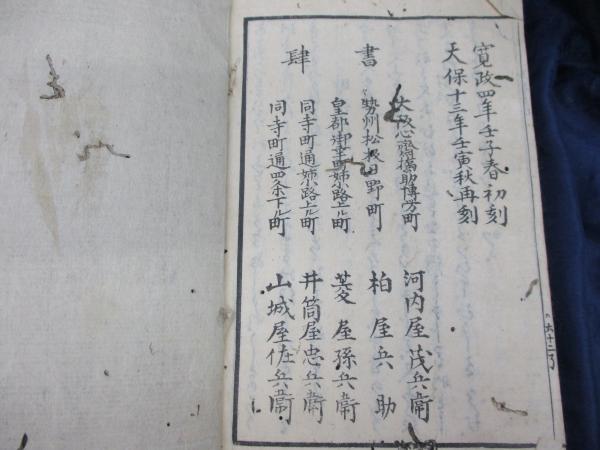 寛政四年壬子春初刻
天保十三年壬寅秋再刻
書肆
大阪心齋橋助博労町
河内屋茂兵衛
勢州松坂日野町
柏屋兵助
皇都御幸町姉小路上ル町
菱屋孫兵衛
同寺町通姉小路上ル町
井筒屋忠兵衛
同寺町通四条下ル町
山城屋佐兵衛